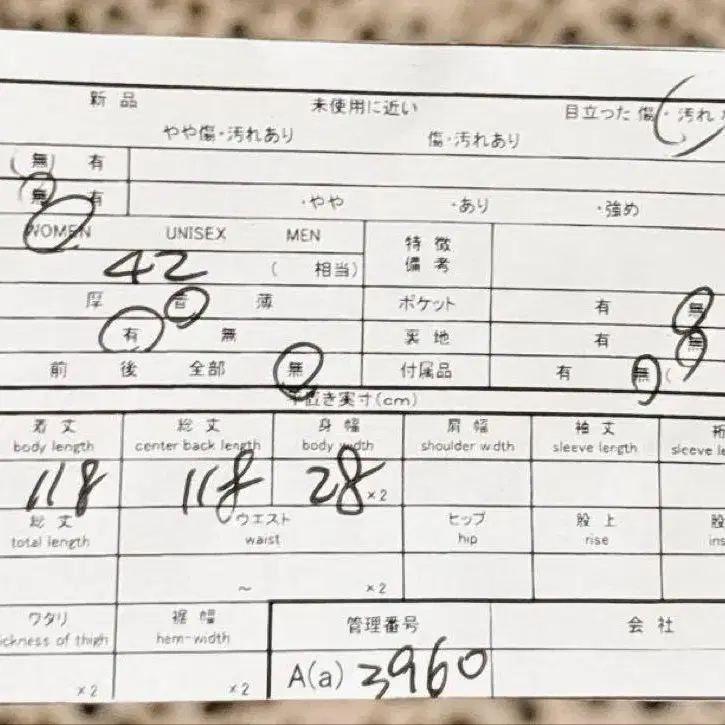 新品 未使用に近い 目立った傷・汚れ
やや傷・汚れあり 傷・汚れあり
無 有
無 有 ・やや ・あり ・強め
WOMEN UNISEX MEN 特徴
備考
42 ( 相当)
厚 普 薄 ポケット 有 無
有 無 裏地 有 無
前 後 全部 無 付属品 有 無 (
平置き実寸(cm)
着丈 総丈 身幅 肩幅 袖丈 裄
body length center back length body width shoulder width sleeve length sleeve le
118 118 28 ×2
総丈 ウエスト ヒップ 股上 股
total length waist hip rise ins
~ ×2
ワタリ 裾幅 管理番号 会社
ickness of thigh hem-width
×2 ×2 A(a) 3960